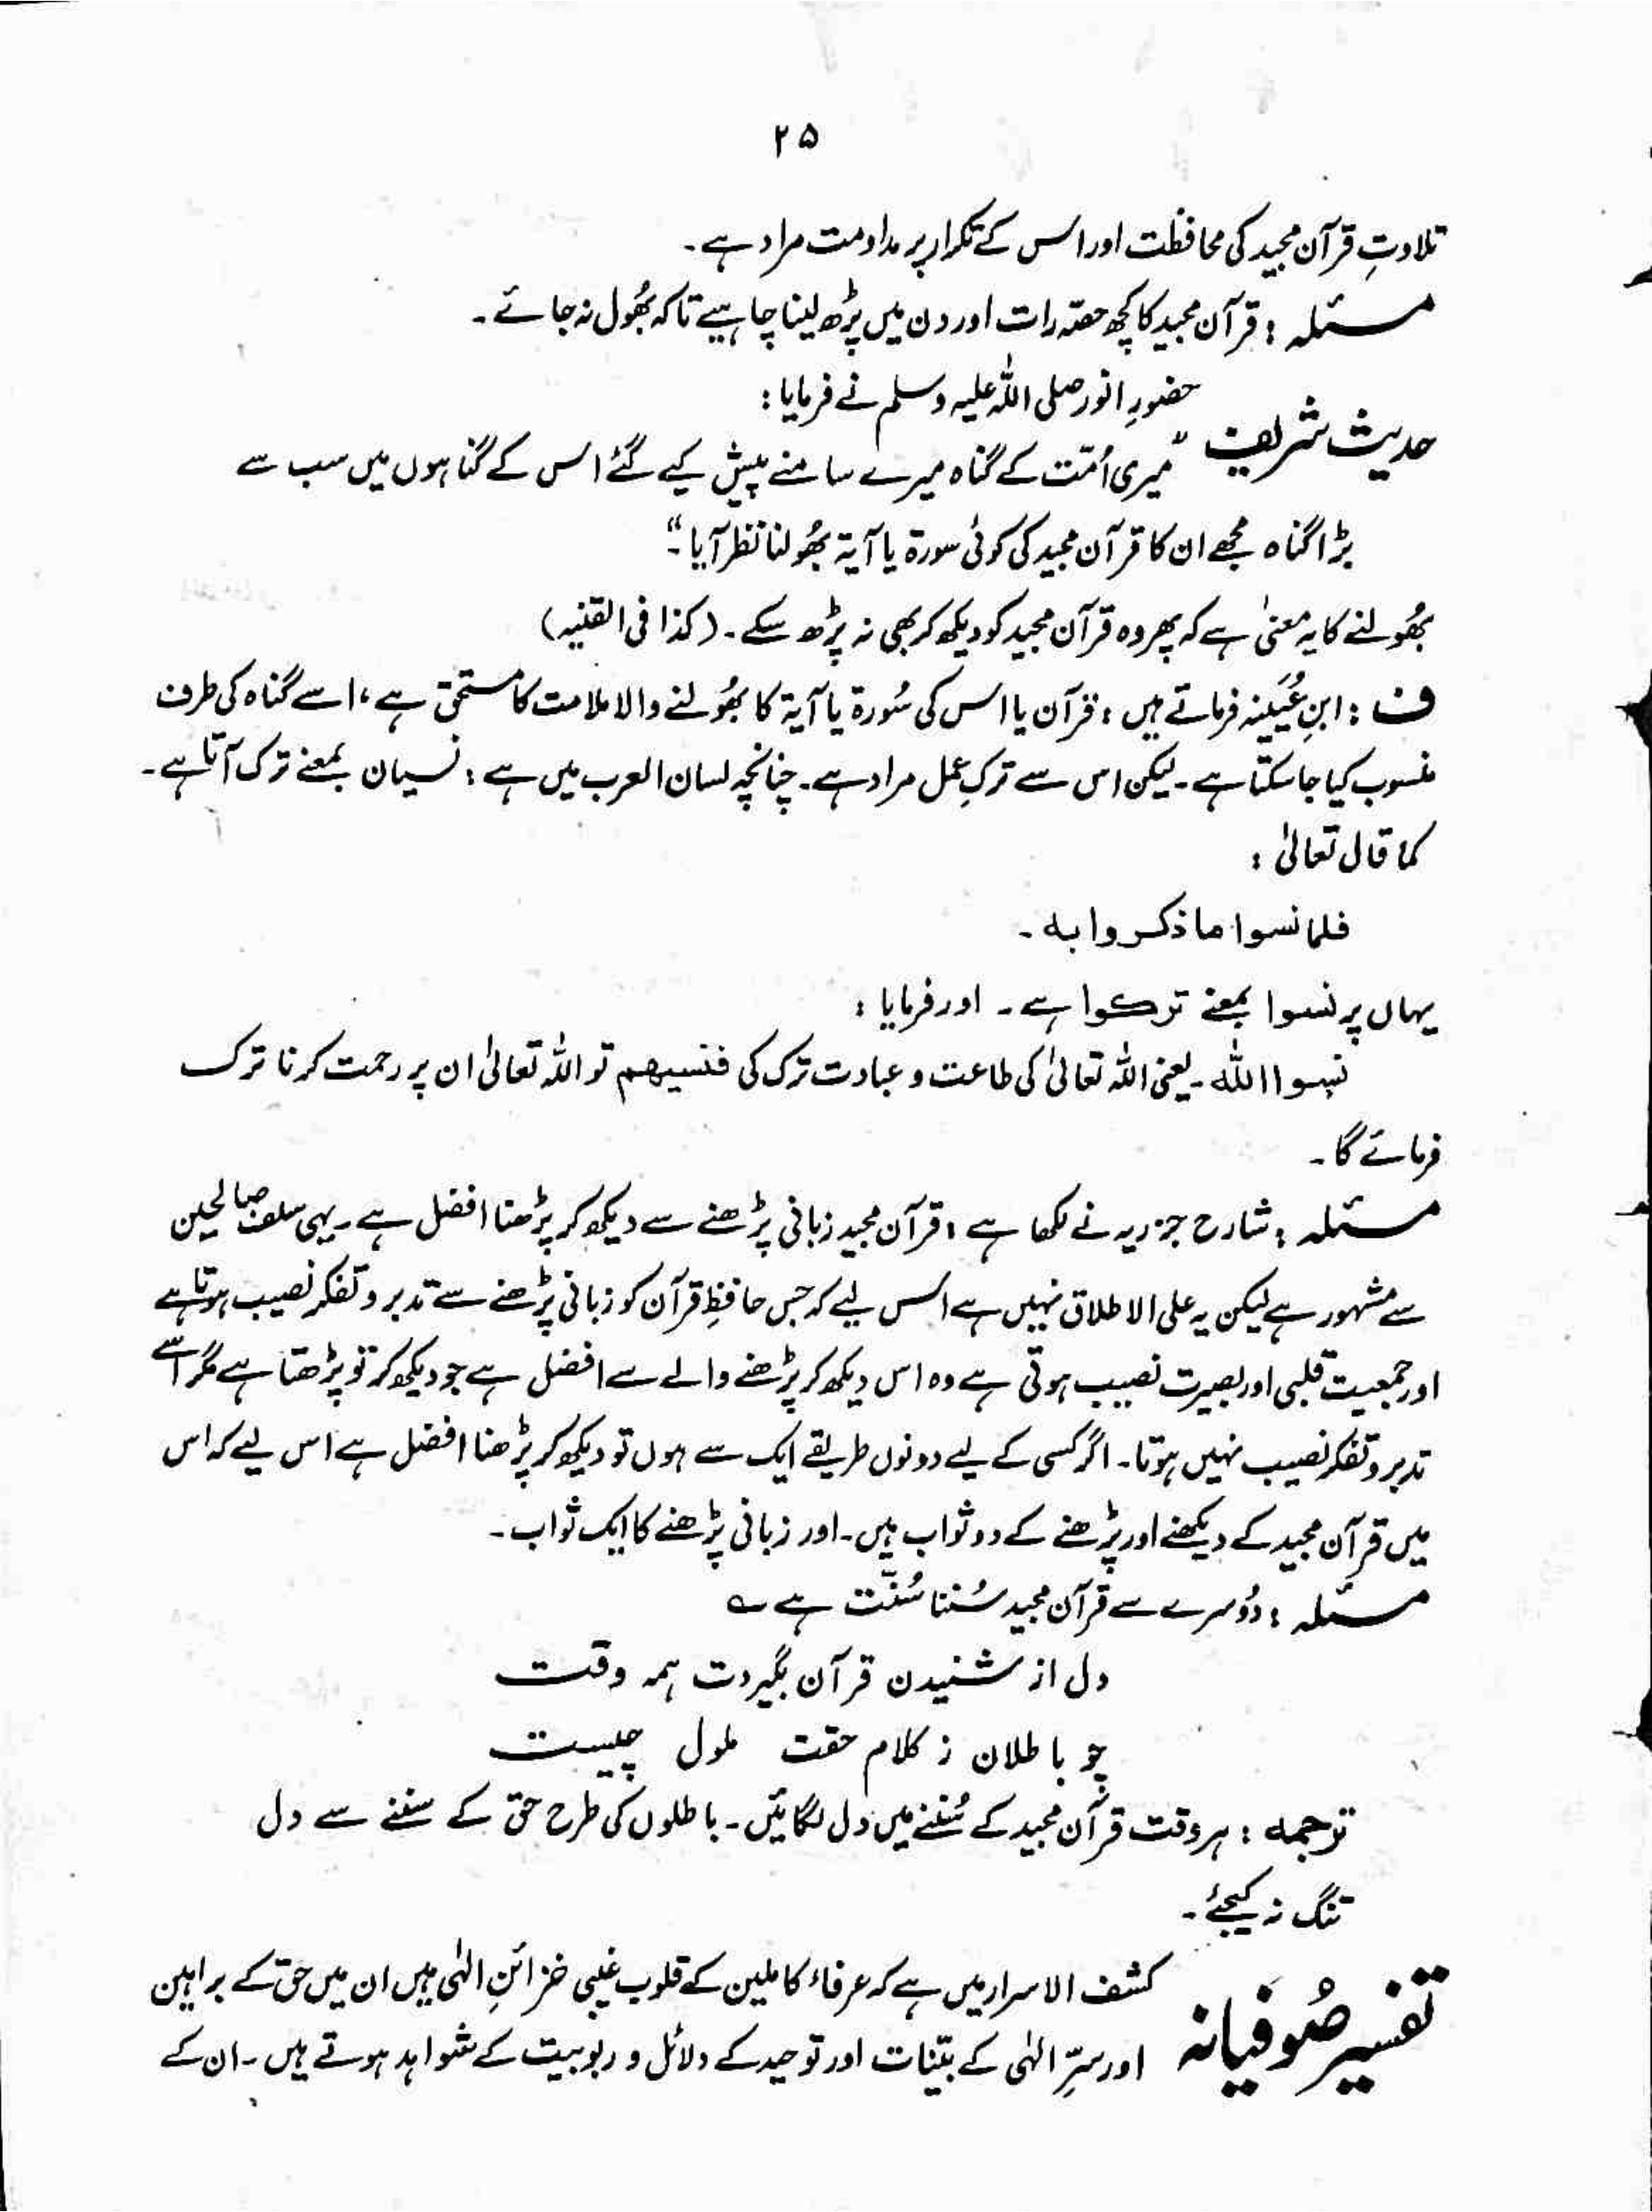 ۲۵
تلاوتِ قرآن مجید کی محافظت اور اس کے تکرار پر مداومت مراد ہے۔
مسئلہ : قرآن مجید کا کچھ حصّہ رات اور دن میں پڑھ لینا چاہیے تاکہ بھُول نہ جائے۔
حضورِ انور صلی اللہ علیہ وسلم نے فرمایا :
حدیث شریف "میری اُمّت کے گناہ میرے سامنے پیش کیے گئے اس کے گناہوں میں سب سے
بڑا گناہ مجھے ان کا قرآن مجید کی کوئی سورۃ یا آیۃ بھُولنا نظر آیا۔"
بھُولنے کا یہ معنیٰ ہے کہ پھر وہ قرآن مجید کو دیکھ کر بھی نہ پڑھ سکے۔ (کذا فی القنیہ)
ف : ابنِ عُیَینہ فرماتے ہیں : قرآن یا اس کی سُورۃ یا آیۃ کا بھُولنے والا ملامت کا مستحق ہے، اسے گناہ کی طرف
منسوب کیا جا سکتا ہے۔ لیکن اس سے ترکِ عمل مراد ہے۔ چنانچہ لسان العرب میں ہے : نسیان بمعنے ترک آتا ہے۔
کما قال تعالیٰ :
فلما نسوا ما ذکروا به۔
یہاں پر نسوا بمعنے ترکوا ہے۔ اور فرمایا :
نسوا اللہ۔ یعنی اللہ تعالیٰ کی طاعت و عبادت ترک کی فنسیھم تو اللہ تعالیٰ ان پر رحمت کرنا ترک
فرمائے گا۔
مسئلہ : شارح جزریہ نے لکھا ہے : قرآن مجید زبانی پڑھنے سے دیکھ کر پڑھنا افضل ہے۔ یہی سلف صالحین
سے مشہور ہے لیکن یہ علی الاطلاق نہیں ہے اس لیے کہ جس حافظِ قرآن کو زبانی پڑھنے سے تدبر و تفکر نصیب ہوتا ہے
اور جمعیت قلبی اور بصیرت نصیب ہوتی ہے وہ اس دیکھ کر پڑھنے والے سے افضل ہے جو دیکھ کر تو پڑھتا ہے مگر اسے
تدبر و تفکر نصیب نہیں ہوتا۔ اگر کسی کے لیے دونوں طریقے ایک سے ہوں تو دیکھ کر پڑھنا افضل ہے اس لیے کہ اس
میں قرآن مجید کے دیکھنے اور پڑھنے کے دو ثواب ہیں۔ اور زبانی پڑھنے کا ایک ثواب۔
مسئلہ : دُوسرے سے قرآن مجید سُننا سُنّت ہے ؎
دل از شنیدن قرآن بگیردت ہمہ وقت
چو باطلان ز کلام حقت ملول چیست
ترجمہ : ہر وقت قرآن مجید کے سُننے میں دل لگائیں۔ باطلوں کی طرح حق کے سننے سے دل
تنگ نہ کیجئے۔
کشف الاسرار میں ہے کہ عرفاء کاملین کے قلوب غیبی خزائنِ الٰہی ہیں ان میں حق کے براہین
تفسیر صُوفیانہ اور سرِّ الٰہی کے بیّنات اور توحید کے دلائل و ربوبیت کے شواہد ہوتے ہیں۔ ان کے